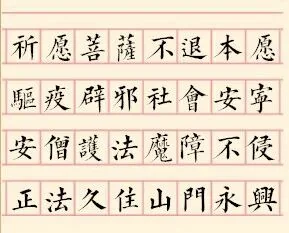 祈愿菩薩不退本愿
驅疫辟邪社會安寧
安僧護法魔障不侵
正法久住山門永興